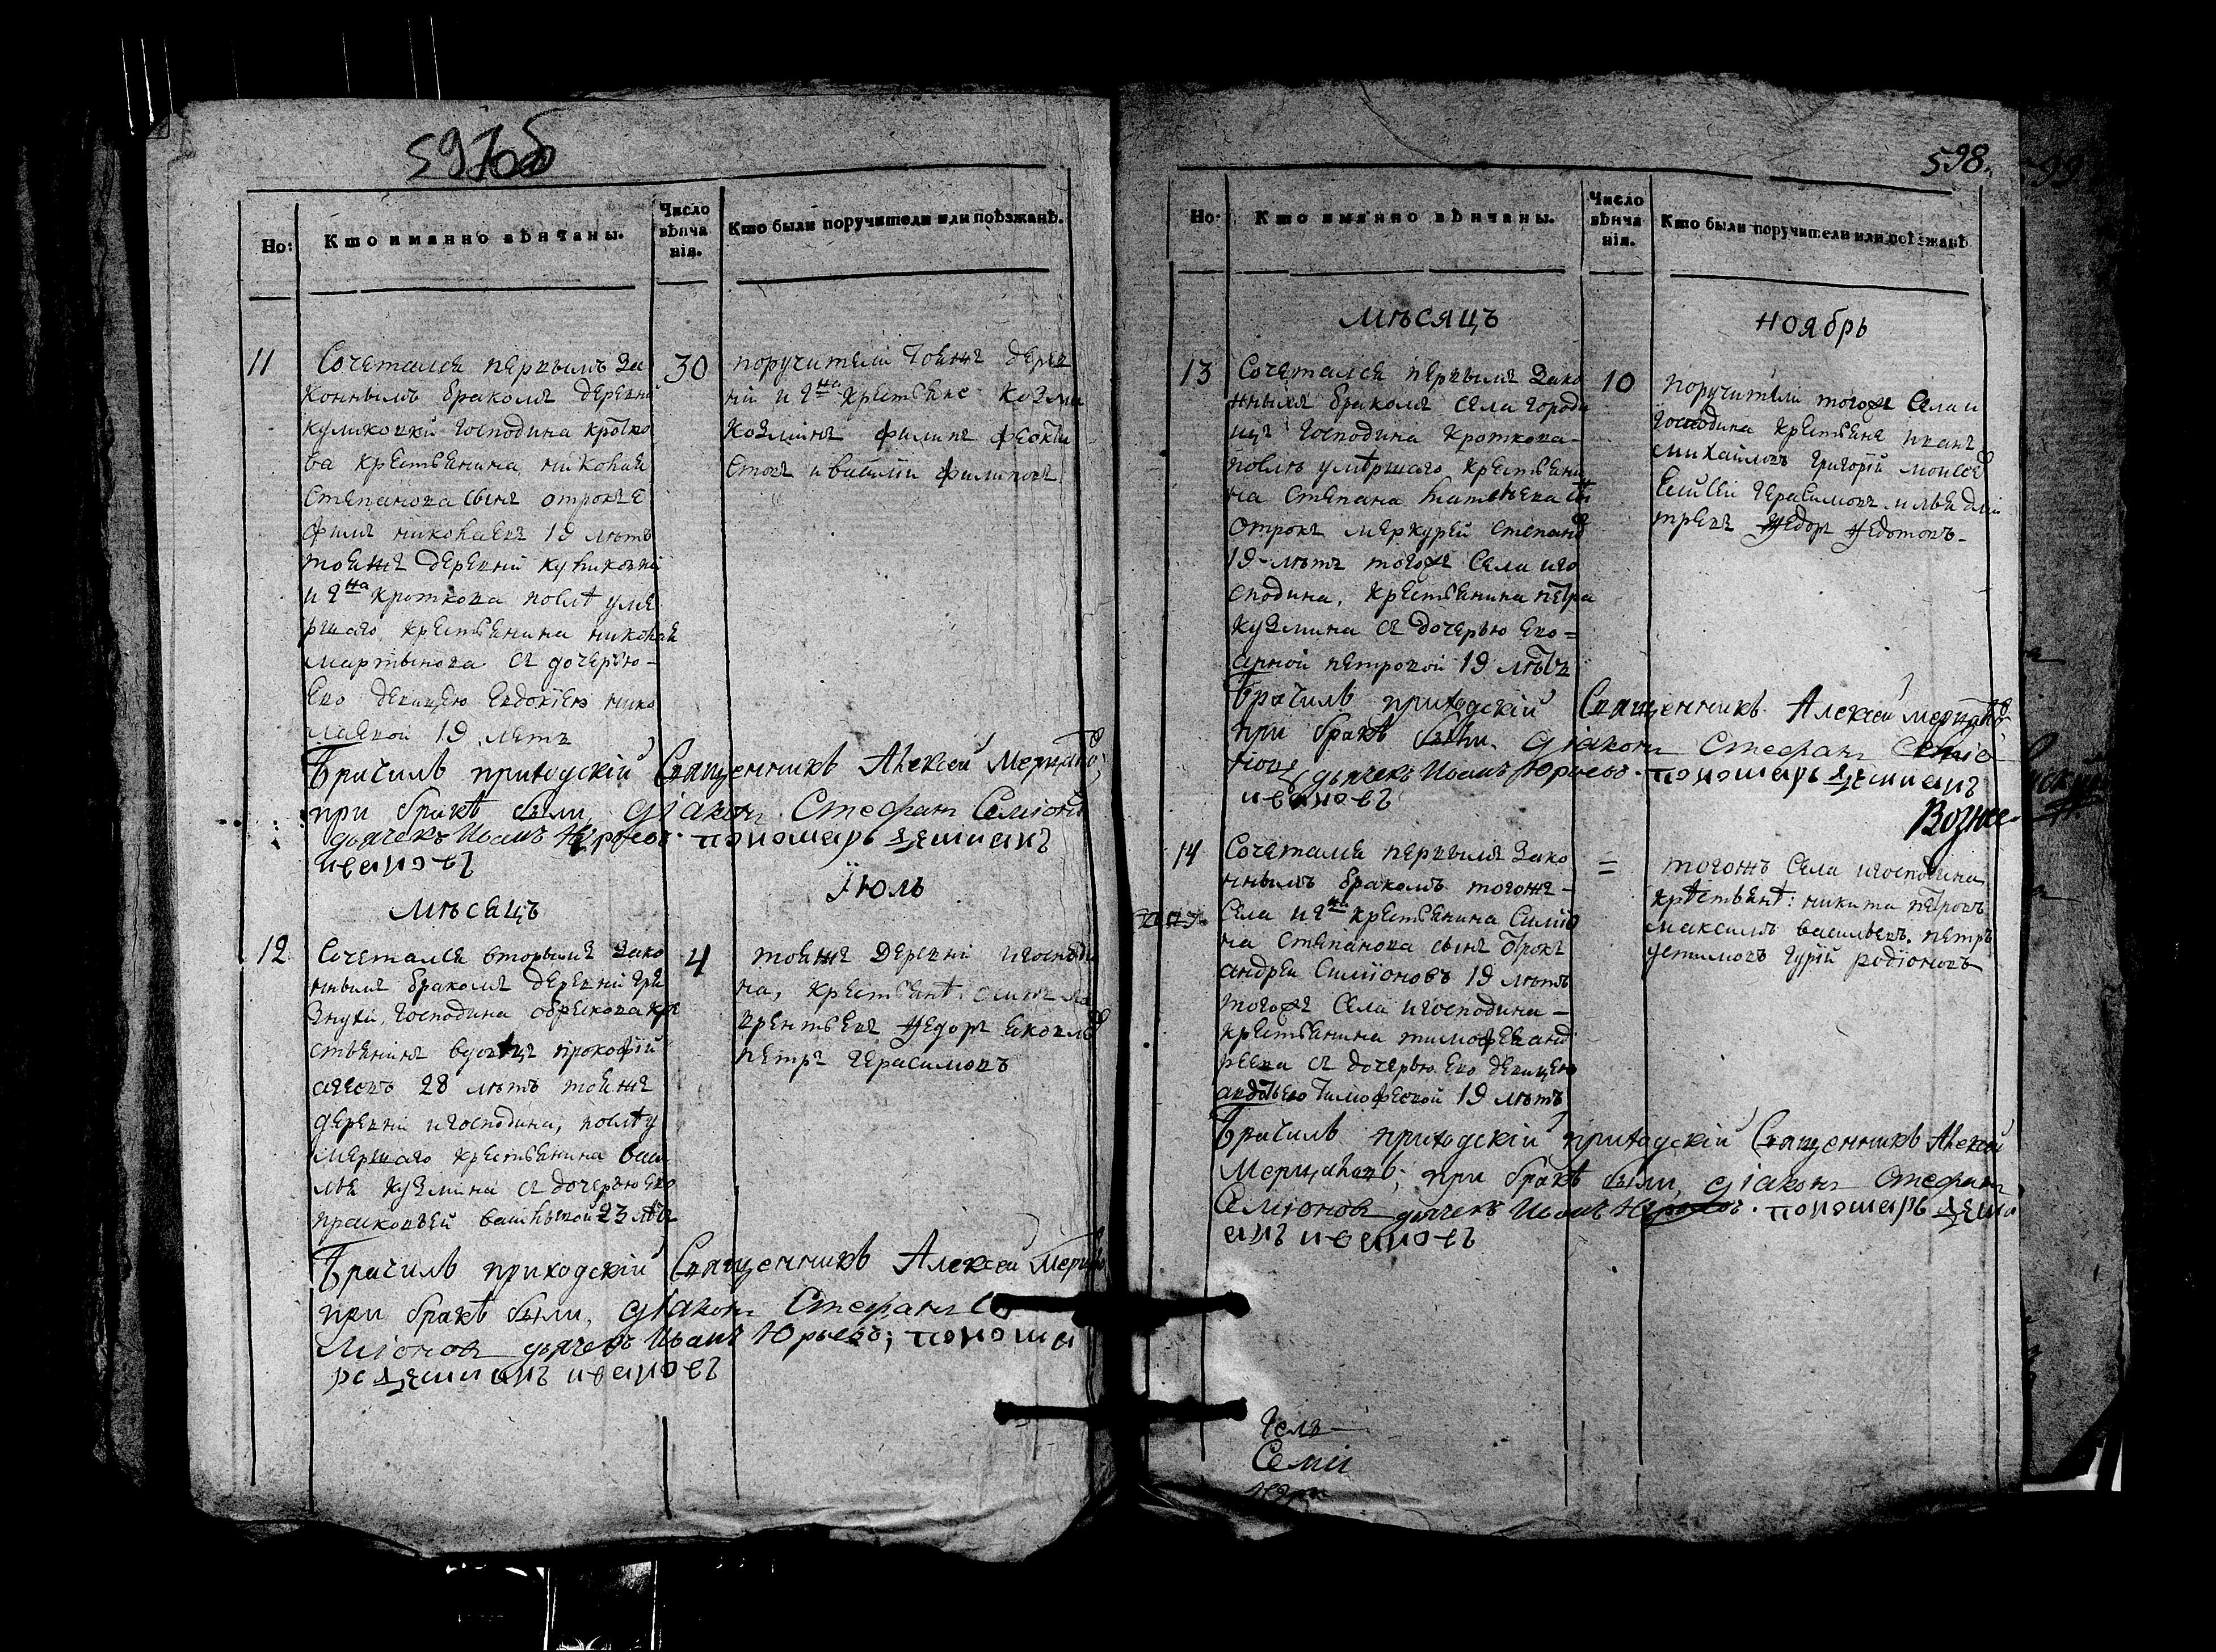 597об
Но: Кто именно вѣнчаны. Число вѣнчанія. Кто были поручители или поѣзжанѣ.
11
Сочетался первымъ за
коннымъ бракомъ деревни
куликовки господина кротко
ва крестьянина николая
степанова сынъ отрокъ е
фимъ николаевъ 19 лѣтъ
тояже деревни куликовки
и гна кроткова послѣ уме
ршаго крестьянина николая
мартынова съ дочерью
Его девицею Евдокіею нико
лаевой 19 летъ
30
поручители тояже дерев
ни и гна крестьяне козма
козминъ филипъ феокти
стовъ и василій филиповъ
Брачилъ приходскій Священникъ Алексей Мерцало
при бракѣ были, діаконъ Стефанъ Семіоно
дьячекъ Иванъ Юрьевъ. пономарь демианъ
ивановъ
мѣсецъ Їюль
12
Сочетался вторымъ зако
ннымъ бракомъ деревни гря
знухи, господина обрескова кре
стьянинъ вдовецъ прокофій
28 лѣтъ тояже
деревни и господина, послѣ у
мершаго крестьянина васи
лья кузмина съ дочерью его
прасковьей васильевой 23 лѣтъ
4
тояже деревни и господи
на, крестьянѣ: ла
врентьевъ федоръ яковлев
петръ герасимовъ
Брачилъ приходскій Священникъ Алексей Мерцало
при бракѣ были, діаконъ Стефанъ Се
міоновъ дьячекъ Иванъ Юрьевъ; понома
рь демианъ ивановъ
598.
Но: Кто именно вѣнчаны. Число вѣнчанія. Кто были поручители или поѣзжанѣ.
мѣсяцъ ноябрь
13
Сочетался первымъ зако
ннымъ бракомъ села городи
щъ господина кроткова
послѣ умѣршаго крестьяни
на степана сы
отрокъ меркурей степано
19 лѣтъ тогожъ села и го
сподина, крестьянина петра
кузмина съ дочерью его
петровой 19 лѣтъ
10
поручители тогожъ села и
господина крестьяне иванъ
михайловъ григорій моисее
Елисей герасимовъ илья дми
тревъ федоръ федотовъ
Брачилъ приходскій Священникъ Алексей мерцало
при бракѣ были діаконъ Стефанъ Семіо
новъ дьячекъ Иванъ Юрьевъ. пономарь демианъ
ивановъ
Вознес
14
Сочетался первымъ зако
ннымъ бракомъ тогожъ
села и гна крестьянина симіо
на степанова сынъ отрокъ
андрей симіоновъ 19 лѣтъ
тогожъ села и господина
крестьянина тимофея анд
реева съ дочерью его девицею
авдотьею тимофеевой 19 лѣтъ
=
тогожъ села и господина
крѣстьянѣ: никита петровъ
максимъ васильевъ. петръ
гурій родіоновъ
Брачилъ приходскій приходскій Священникъ Алексей
Мерцаловъ; при бракѣ были, діаконъ Стефанъ
Семіоновъ дьячекъ Иванъ Юрьевъ. пономарь деми
анъ ивановъ
Семи